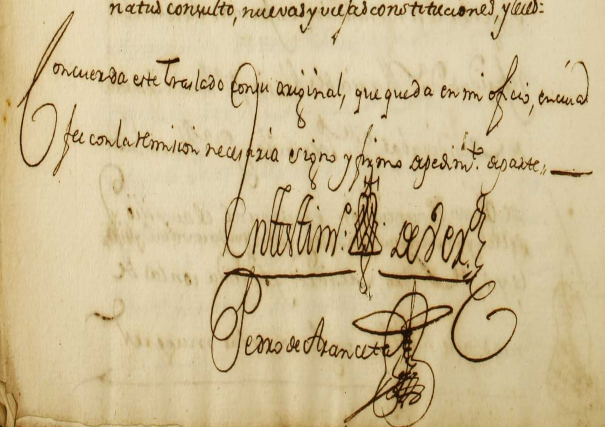 natus consulto, nuevas y viejas constituciones, y leies:
Concuerda este Traslado con su original, que queda en mi oficio, en cuia
fee con la remision necesaria signo y firmo de pedim.to de parte,,
En testim.o de Ver.
Pedro de Aranceta